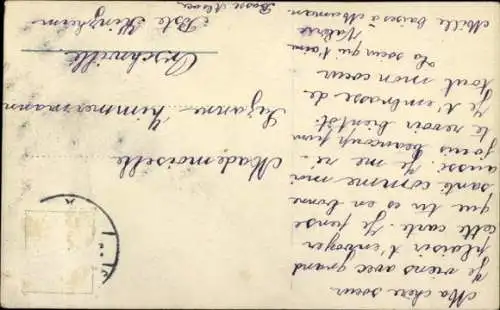 Ma chère soeur
Je viens avec grand
plaisir t'envoyer
cette carte. Je pense
que tu es en bonne
santé comme moi
aussi. Je me ré-
jouis beaucoup pour
te revoir bientôt.
Je t'embrasse de
tout mon coeur
La soeur qui t'aime
Valérie
Mille baises à Maman.
Mademoiselle
Suzanne Zimmermann
Orschwiller
Poste Kinzheim